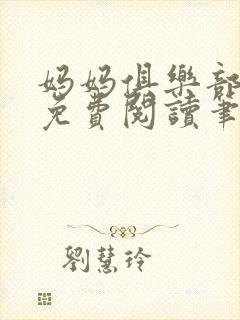 媽媽俱樂部
免費閱讀筆
劉慧玲